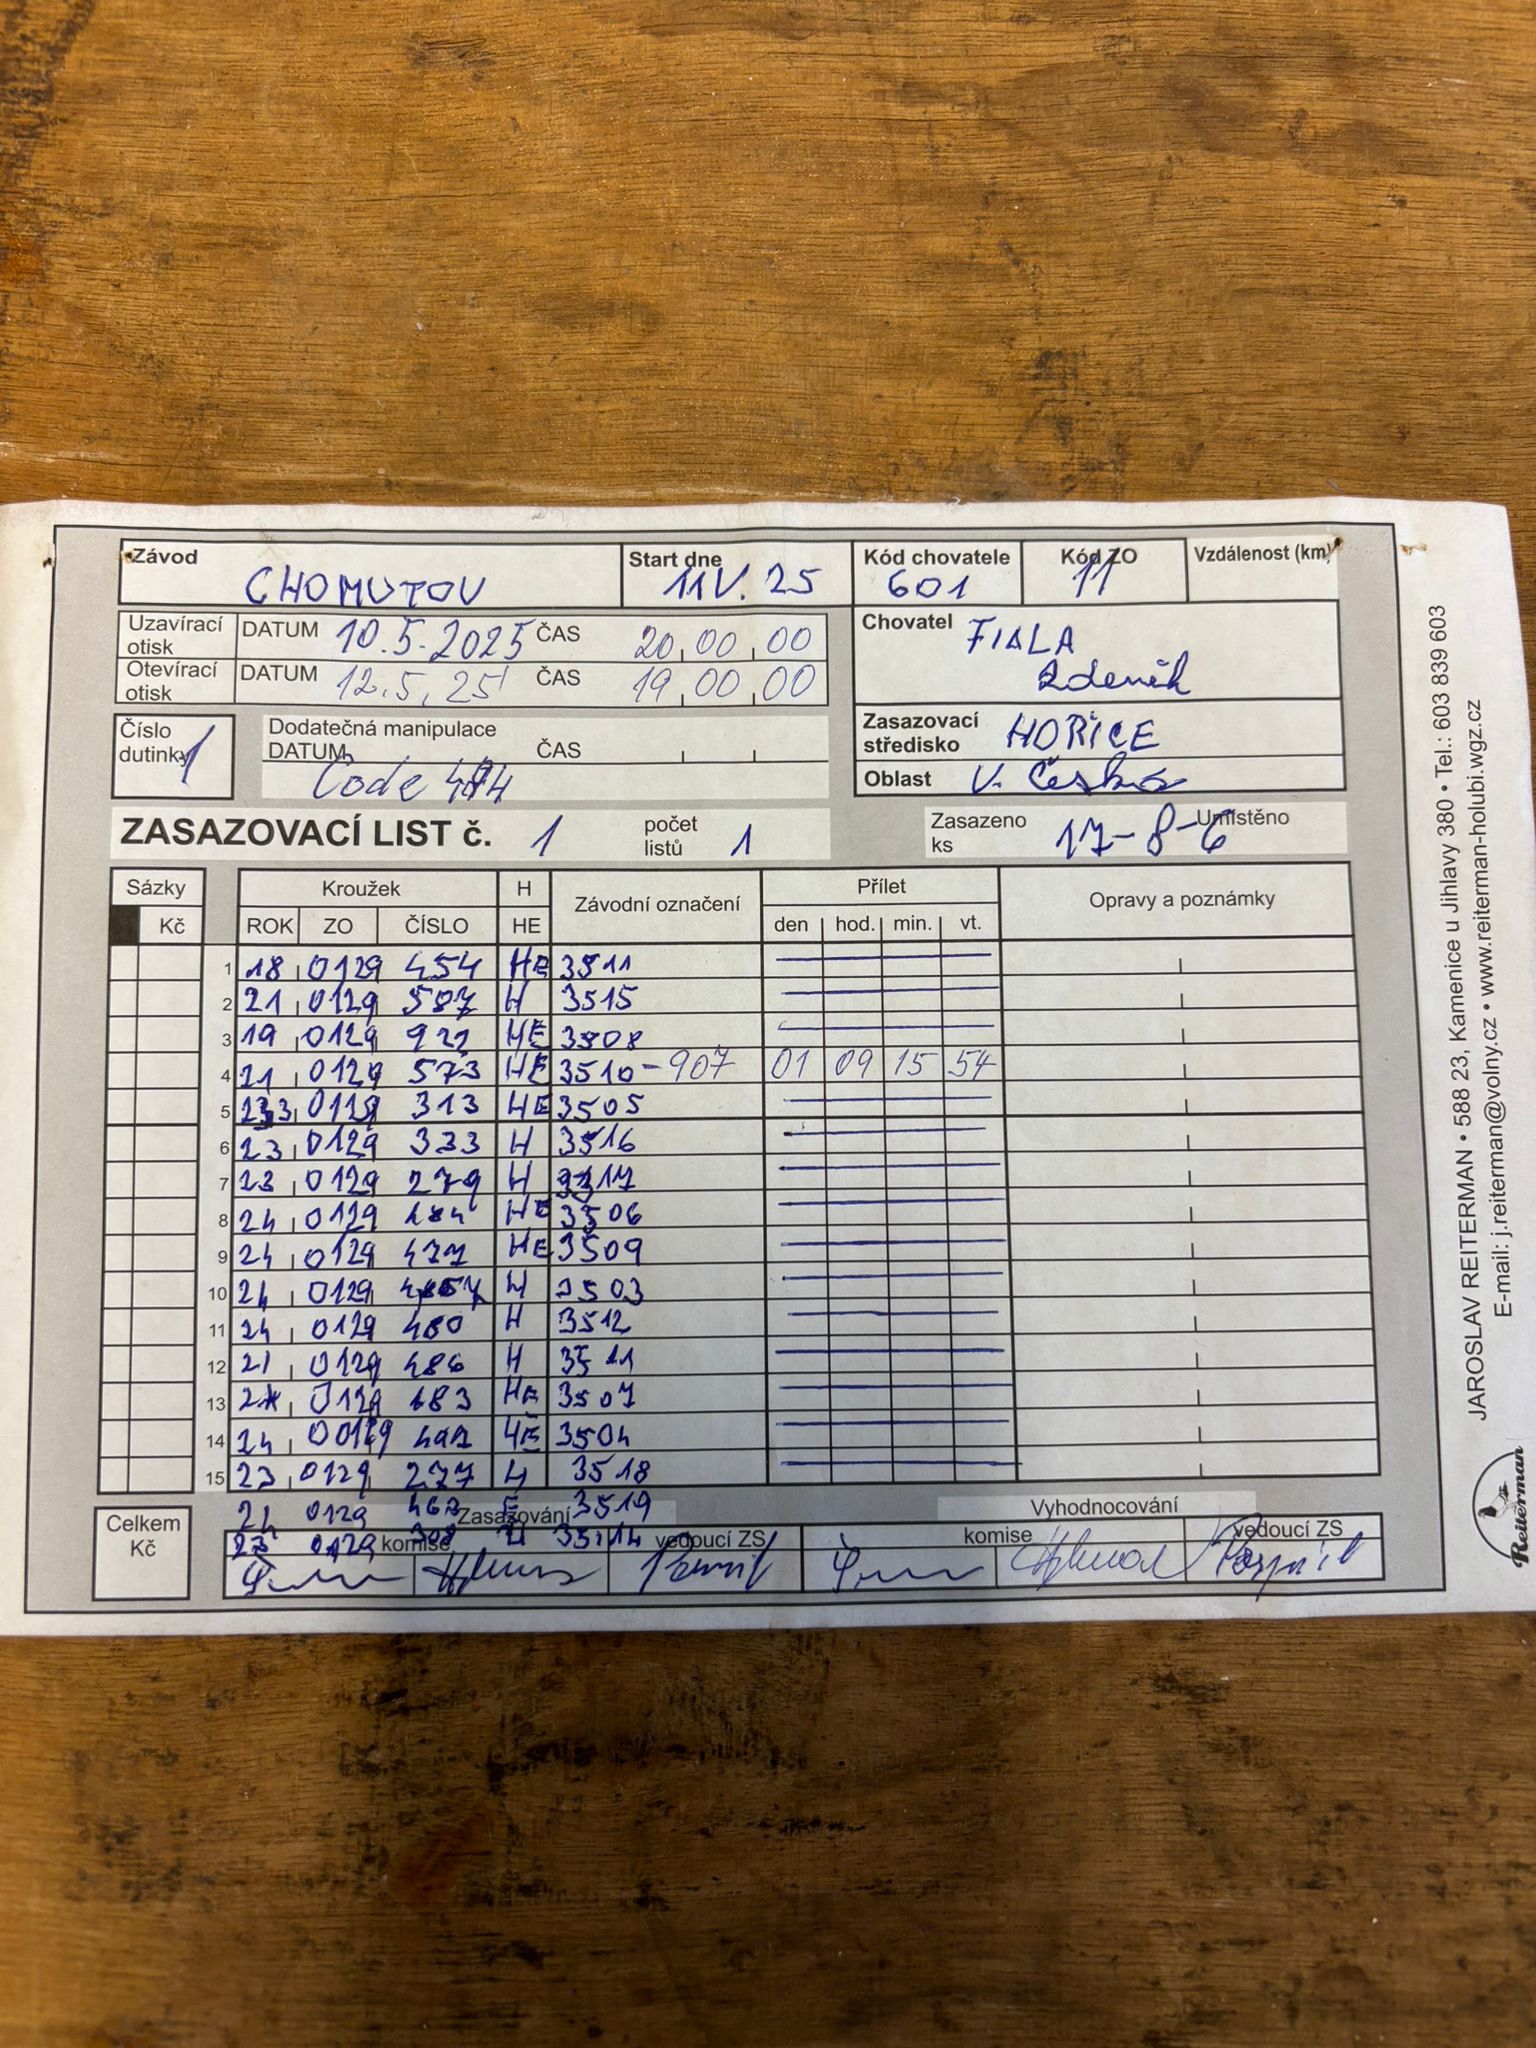 Závod CHOMUTOV Start dne 11 V. 25 Kód chovatele 601 Kód ZO 11 Vzdálenost (km)
Uzavírací otisk DATUM 10.5.2025 ČAS 20 00 00
Otevírací otisk DATUM 12.5.25 ČAS 19 00 00
Chovatel FIALA
Zdeněk
Číslo dutinky 1
Dodatečná manipulace
DATUM ČAS
Code
Zasazovací středisko HOŘICE
Oblast V. Česká
ZASAZOVACÍ LIST č. 1 počet listů 1 Zasazeno ks 17-8-6 Umístěno
Sázky Kroužek H Závodní označení Přílet Opravy a poznámky
Kč ROK ZO ČÍSLO HE den hod. min. vt.
1 18 0129 454 HE 3511
2 21 0129 587 H 3515
3 19 0129 922 HE 3508
4 21 0129 573 HE 3510-907 01 09 15 54
5 0129 313 HE 3505
6 23 0129 333 H 3516
7 23 0129 279 H
8 24 0129 484 HE 3506
9 24 0129 477 HE 3509
10 24 0129 H 3503
11 24 0129 480 H 3512
12 21 0129 486 H
13 0129 HE 3507
14 24 HE 3504
15 23 0129 277 H 3518
21 0129 3519
23 0129 308 H 3514
Celkem Kč
Zasazování
komise vedoucí ZS
Vyhodnocování
komise vedoucí ZS
JAROSLAV REITERMAN • 588 23, Kamenice u Jihlavy 380 • Tel.: 603 839 603
E-mail: j.reiterman@volny.cz • www.reiterman-holubi.wgz.cz
Reiterman